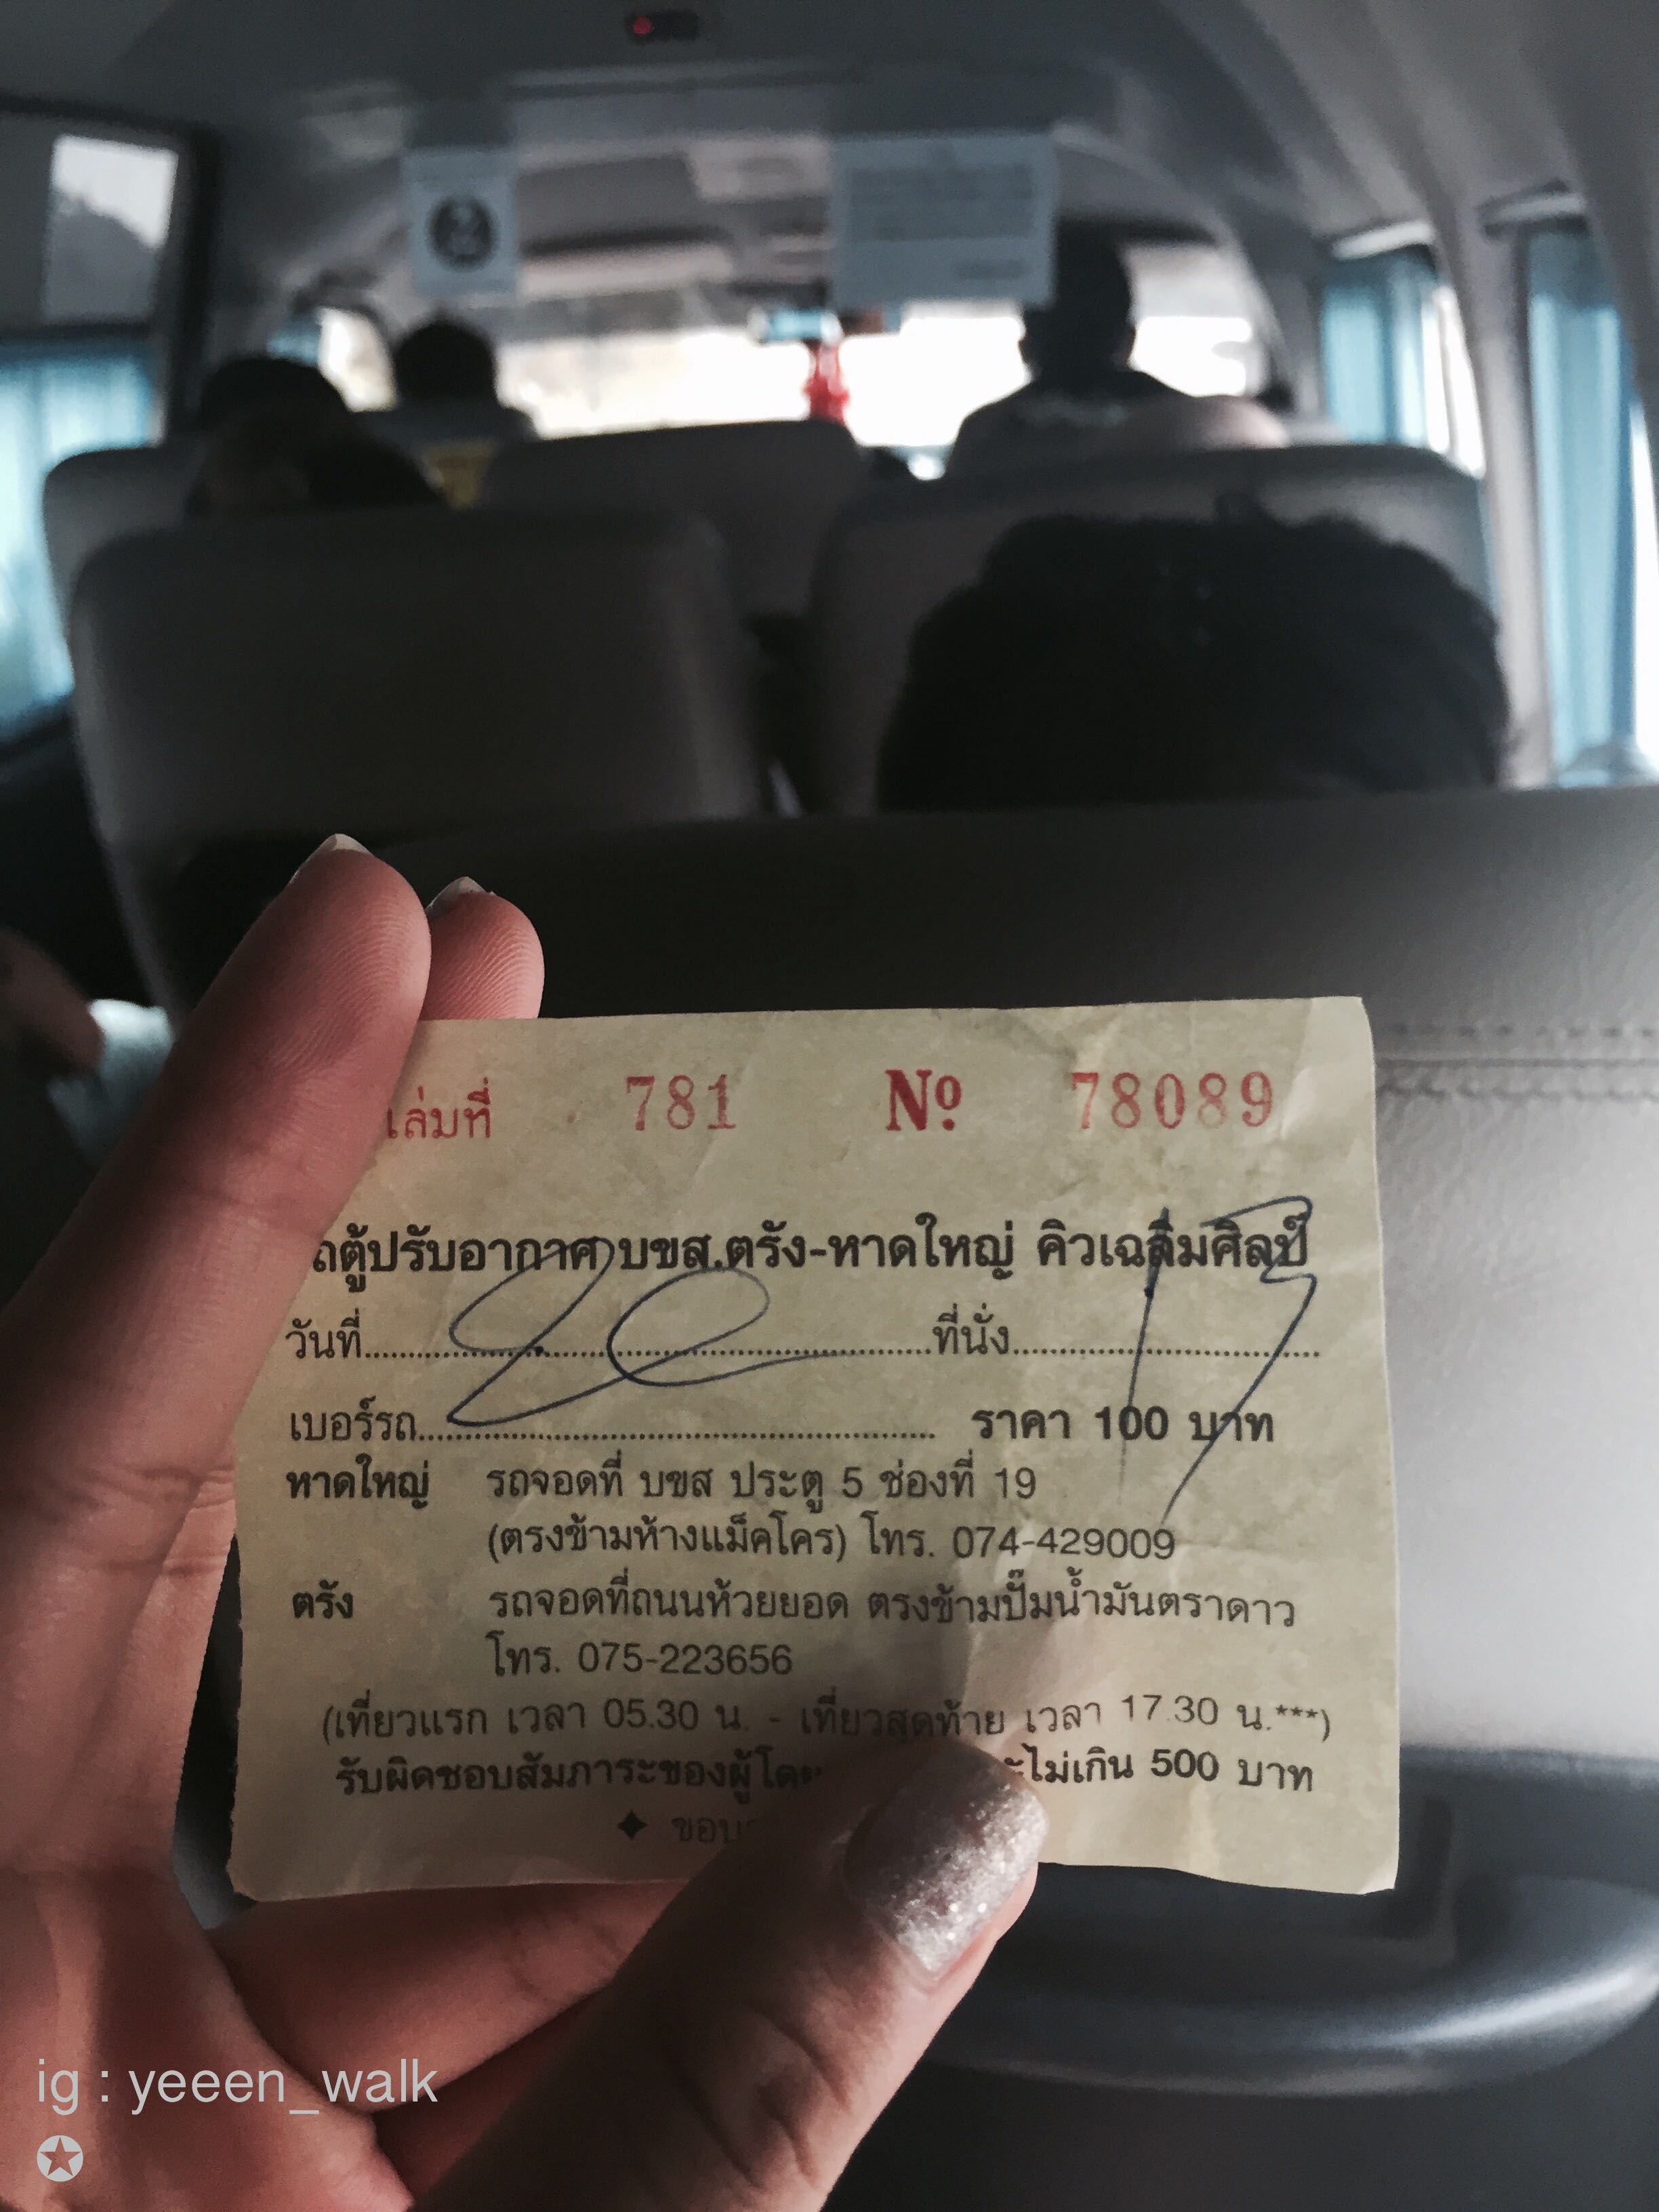 เล่มที่ 781 No 78089
รถตู้ปรับอากาศ บขส.ตรัง-หาดใหญ่ คิวเฉลิมศิลป์
วันที่ ที่นั่ง
เบอร์รถ ราคา 100 บาท
หาดใหญ่ รถจอดที่ บขส ประตู 5 ช่องที่ 19
(ตรงข้ามห้างแม็คโคร) โทร. 074-429009
ตรัง รถจอดที่ถนนห้วยยอด ตรงข้ามปั๊มน้ำมันตราดาว
โทร. 075-223656
(เที่ยวแรก เวลา 05.30 น. - เที่ยวสุดท้าย เวลา 17.30 น.***)
รับผิดชอบสัมภาระของผู้โดย ไม่เกิน 500 บาท
ig : yeeen_walk